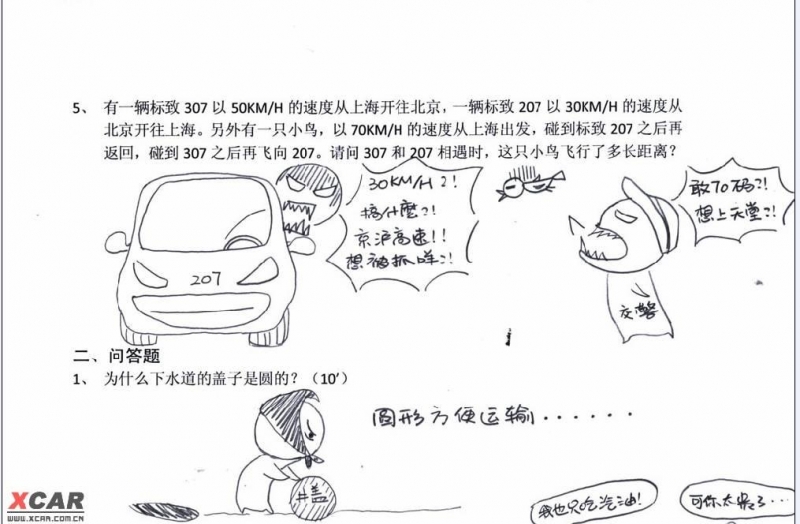 5、 有一辆标致 307 以 50KM/H 的速度从上海开往北京，一辆标致 207 以 30KM/H 的速度从
北京开往上海。另外有一只小鸟，以 70KM/H 的速度从上海出发，碰到标致 207 之后再
返回，碰到 307 之后再飞向 207。请问 307 和 207 相遇时，这只小鸟飞行了多长距离？
30KM/H？！
搞什麼？！
京沪高速！！
想被抓咩？！
敢70码？！
想上天堂？！
207
交警
二、问答题
1、 为什么下水道的盖子是圆的？（10’）
圆形方便运输······
井盖
我也只吃汽油！
可你太累了...
XCAR
WWW.XCAR.COM.CN